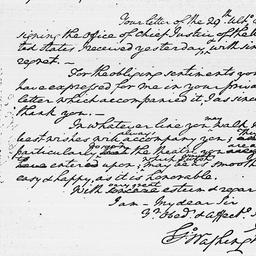 Your letter of the 29th Ulto. re
signing the office of Chief Justice of the U
ted States, I received yesterday, with sin
regret. —
For the obliging sentiments you
have expressed for me in your private
letter which accompanied it, I as since
thank you. —
In whatever line you may walk
best wishes will always accompany you;
particularly on the theatre you are
entered upon; which I wish may be as smooth
easy & happy, as it is honorable.
With very great esteem & regard
I am — My dear Sir
Yr. Obed. & Affecte. S
Go. Washington